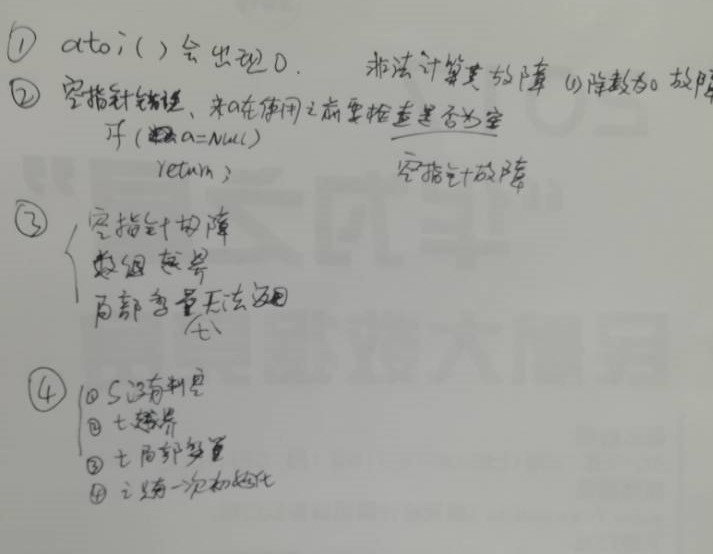 ① atoi()会出现0. 非法计算类故障 (1)除数为0 故障
② 空指针错误、来a在使用之前要检查是否为空
if (a=Null)
return;
空指针故障
③ 空指针故障
数组越界
局部变量无法返回
(t)
④ ① S没有判空
② t越界
③ t局部变量
④ i只有一次初始化